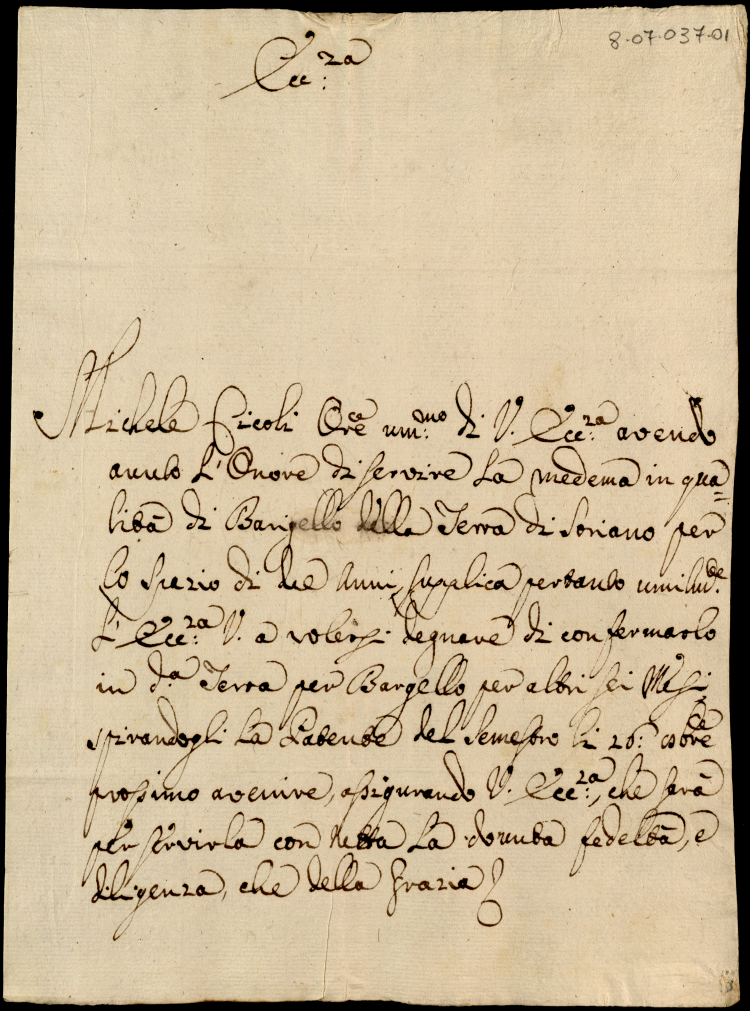 8-07-037-01
Ecc:za
Michele Ficoli Ore um:mo di V. Ecc:za avendo
auuto L'Onore di servire La medema in qua=
lità di Barigello della Terra di Soriano per
lo spazio di due Anni, supplica pertanto umilm:te
L'Ecc:za V. a volersi degnare di confermarlo
in d:a Terra per Bargello per altri sei Mesi,
spirandogli La Patente del Semestre li 26: 8bre
prossimo avenire, assigurando V. Ecc:za, che sarà
per servirla con tutta La douuta fedeltà, e
diligenza, che della Grazia